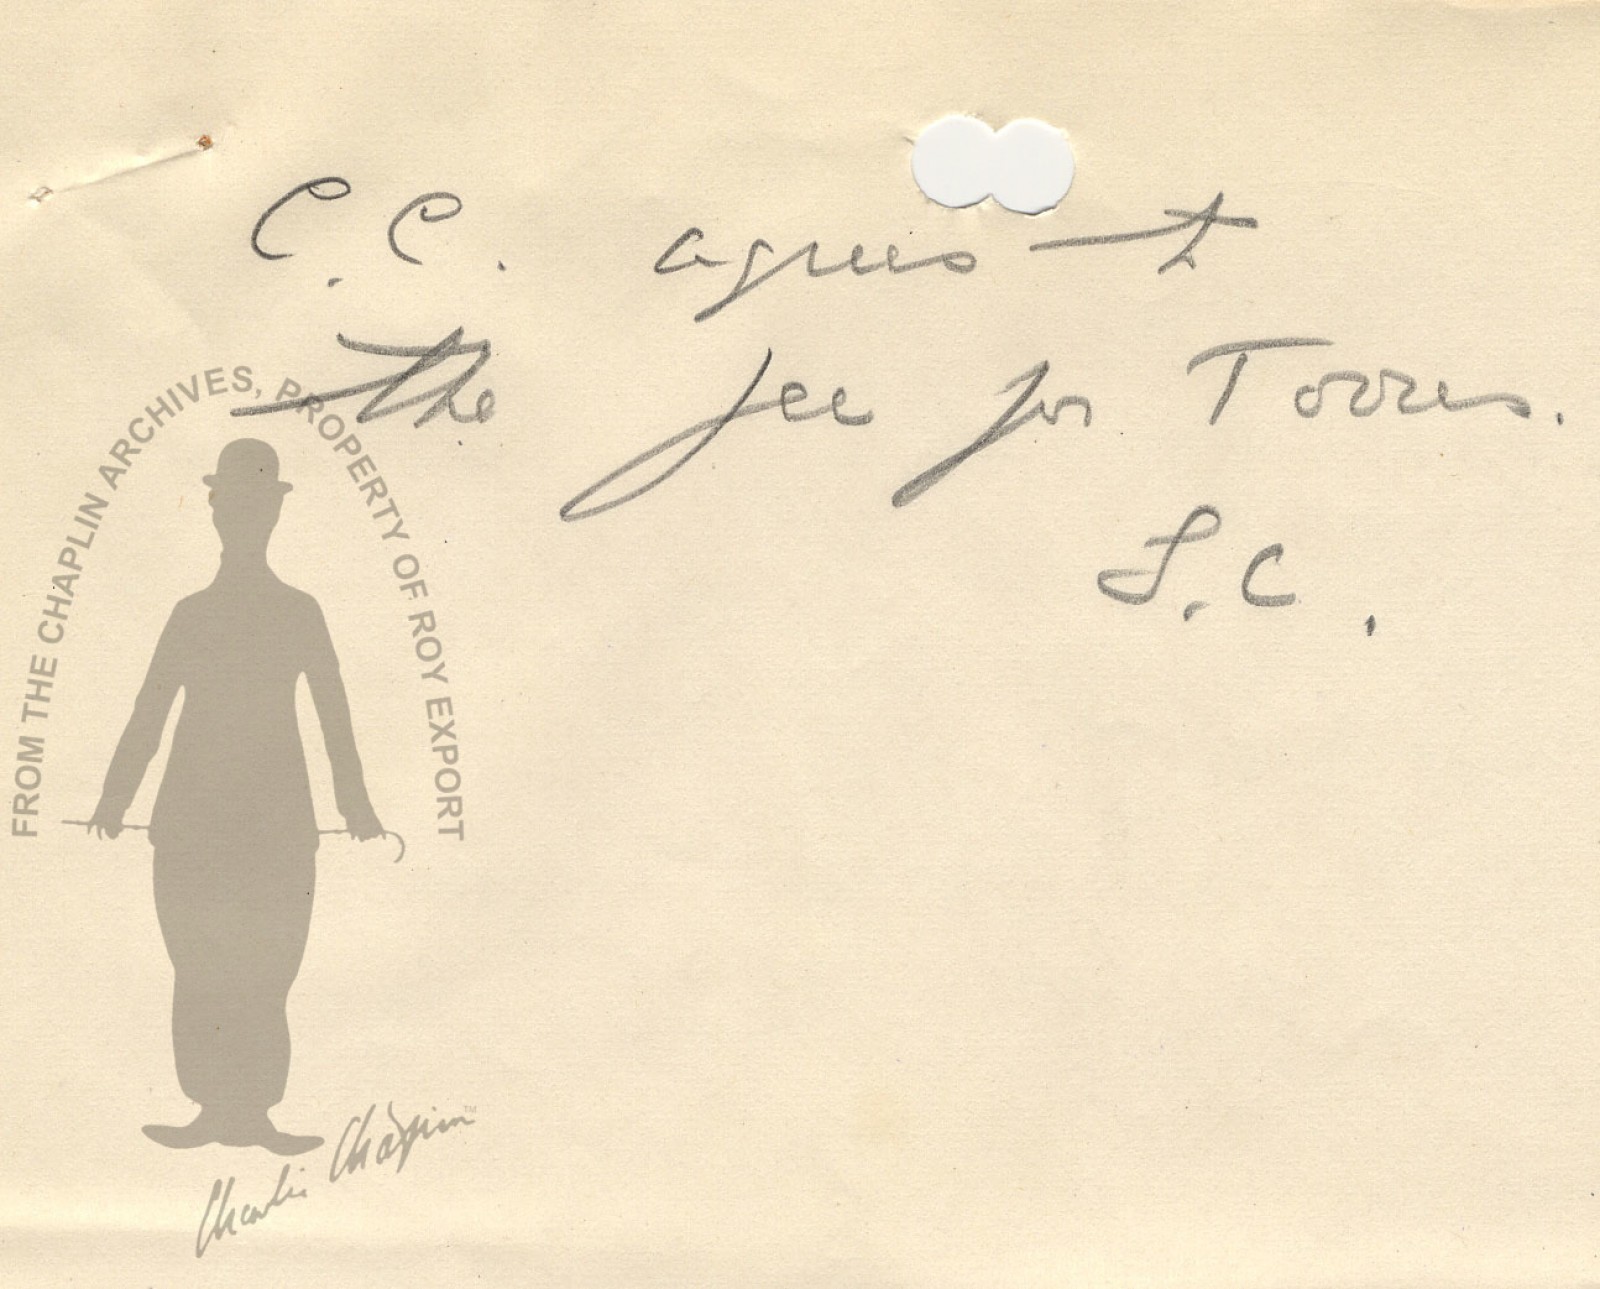 C.C. agrees to
the fee for Torres.
S.C.
FROM THE CHAPLIN ARCHIVES, PROPERTY OF ROY EXPORT
Charlie Chaplin™